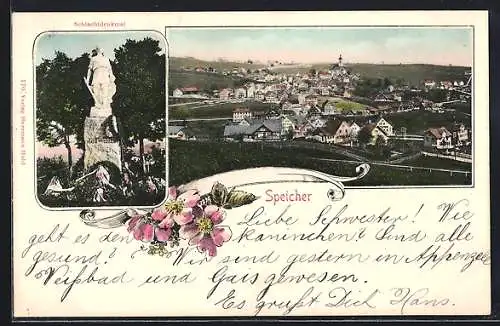 Schlachtdenkmal
170. Verlag Hermann
Speicher
Liebe Schwester! Wie
geht es den Kaninchen? Sind alle
gesund? Wir sind gestern in Appenzell
Weißbad und Gais gewesen.
Es grußt Dich Hans.